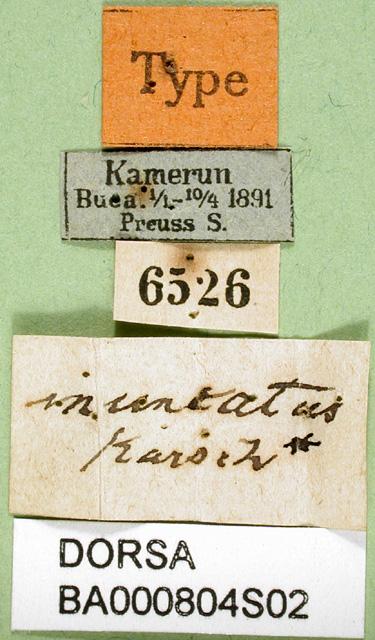 Type
Kamerun
Buea. 1/1.-10/4 1891
Preuss S.
6526
inuncatus
Karsch*
DORSA
BA000804S02